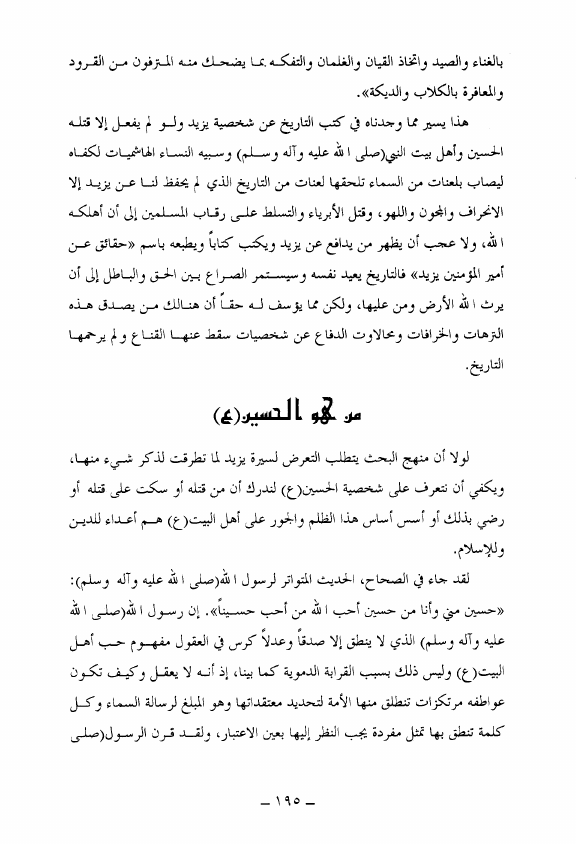 بالغناء والصيد واتخاذ القيان والغلمان والتفكه بما يضحك منه المترفون من القرود
والمعافرة بالكلاب والديكة».
هذا يسير مما وجدناه في كتب التاريخ عن شخصية يزيد ولو لم يفعل إلا قتله
الحسين وأهل بيت النبي(صلى الله عليه وآله وسلم) وسبيه النساء الهاشميات لكفاه
ليصاب بلعنات من السماء تلحقها لعنات من التاريخ الذي لم يحفظ لنا عن يزيد إلا
الانحراف والمجون واللهو، وقتل الأبرياء والتسلط على رقاب المسلمين إلى أن أهلكه
الله، ولا عجب أن يظهر من يدافع عن يزيد ويكتب كتاباً ويطبعه باسم «حقائق عن
أمير المؤمنين يزيد» فالتاريخ يعيد نفسه وسيستمر الصراع بين الحق والباطل إلى أن
يرث الله الأرض ومن عليها، ولكن مما يؤسف له حقاً أن هنالك من يصدق هذه
الترهات والخرافات ومحالاوت الدفاع عن شخصيات سقط عنها القناع ولم يرحمها
التاريخ.
من هو الحسين(ع)
لولا أن منهج البحث يتطلب التعرض لسيرة يزيد لما تطرقت لذكر شيء منها،
ويكفي أن نتعرف على شخصية الحسين(ع) لندرك أن من قتله أو سكت على قتله أو
رضي بذلك أو أسس أساس هذا الظلم والجور على أهل البيت(ع) هم أعداء للدين
وللإسلام.
لقد جاء في الصحاح، الحديث المتواتر لرسول الله(صلى الله عليه وآله وسلم):
«حسين مني وأنا من حسين أحب الله من أحب حسيناً». إن رسول الله(صلى الله
عليه وآله وسلم) الذي لا ينطق إلا صدقاً وعدلاً كرس في العقول مفهوم حب أهل
البيت(ع) وليس ذلك بسبب القرابة الدموية كما بينا، إذ أنه لا يعقل وكيف تكون
عواطفه مرتكزات تنطلق منها الأمة لتحديد معتقداتها وهو المبلغ لرسالة السماء وكل
كلمة تنطق بها تمثل مفردة يجب النظر إليها بعين الاعتبار، ولقد قرن الرسول(صلى
– ١٩٥ –